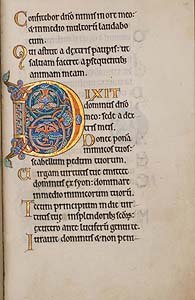 Confitebor dño nimis in ore meo:
& in medio multorū laudabo
eum.
Qui astitit a dextris pauperis: ut
saluam faceret a psequentib;
animam meam.
DIXIT
dominus dño
meo: sede a dex
tris meis.
Donec ponā
inimicos tuos:
scabellum pedum tuorum.
Virgam uirtutis tue emittet
dominus ex syon: dominare
in medio inimicorum tuorum.
Tecum principium in die uir
tutis tue in splendorib; scōꝝ:
ex utero ante luciferū genui te.
Iurauit dominus & non peni